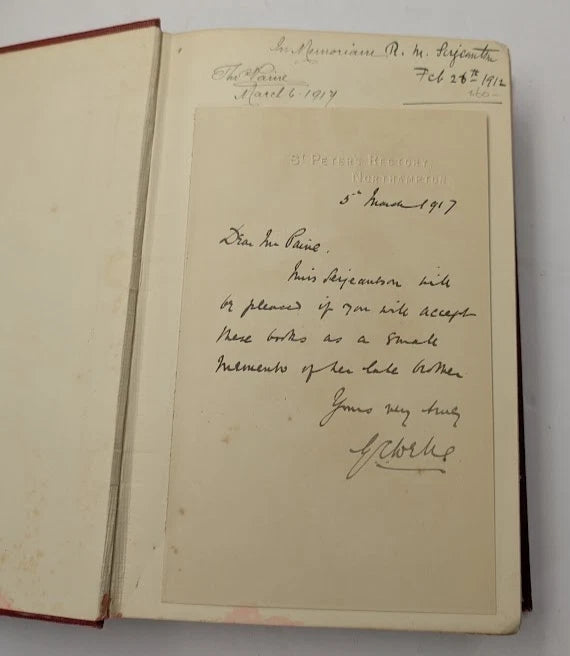 In Memoriam R. M. Serjeantson
Feb 28th 1912
Tho Paine
March 6. 1917
St Peter's Rectory,
Northampton.
5th March 1917
Dear Mr Paine,
Miss Serjeantson will
be pleased if you will accept
these books as a small
memento of her late brother
Yours very truly